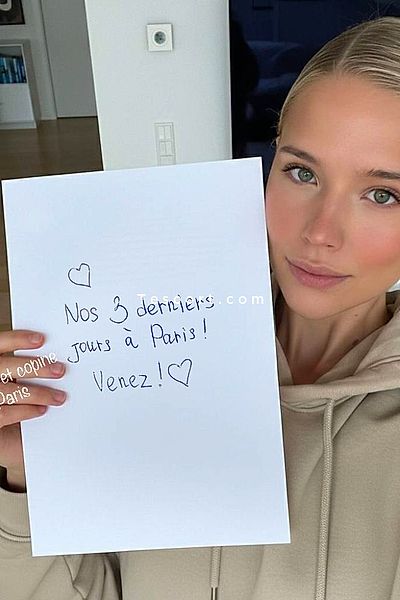 Nos 3 derniers
jours à Paris!
Venez!
et copine
Paris